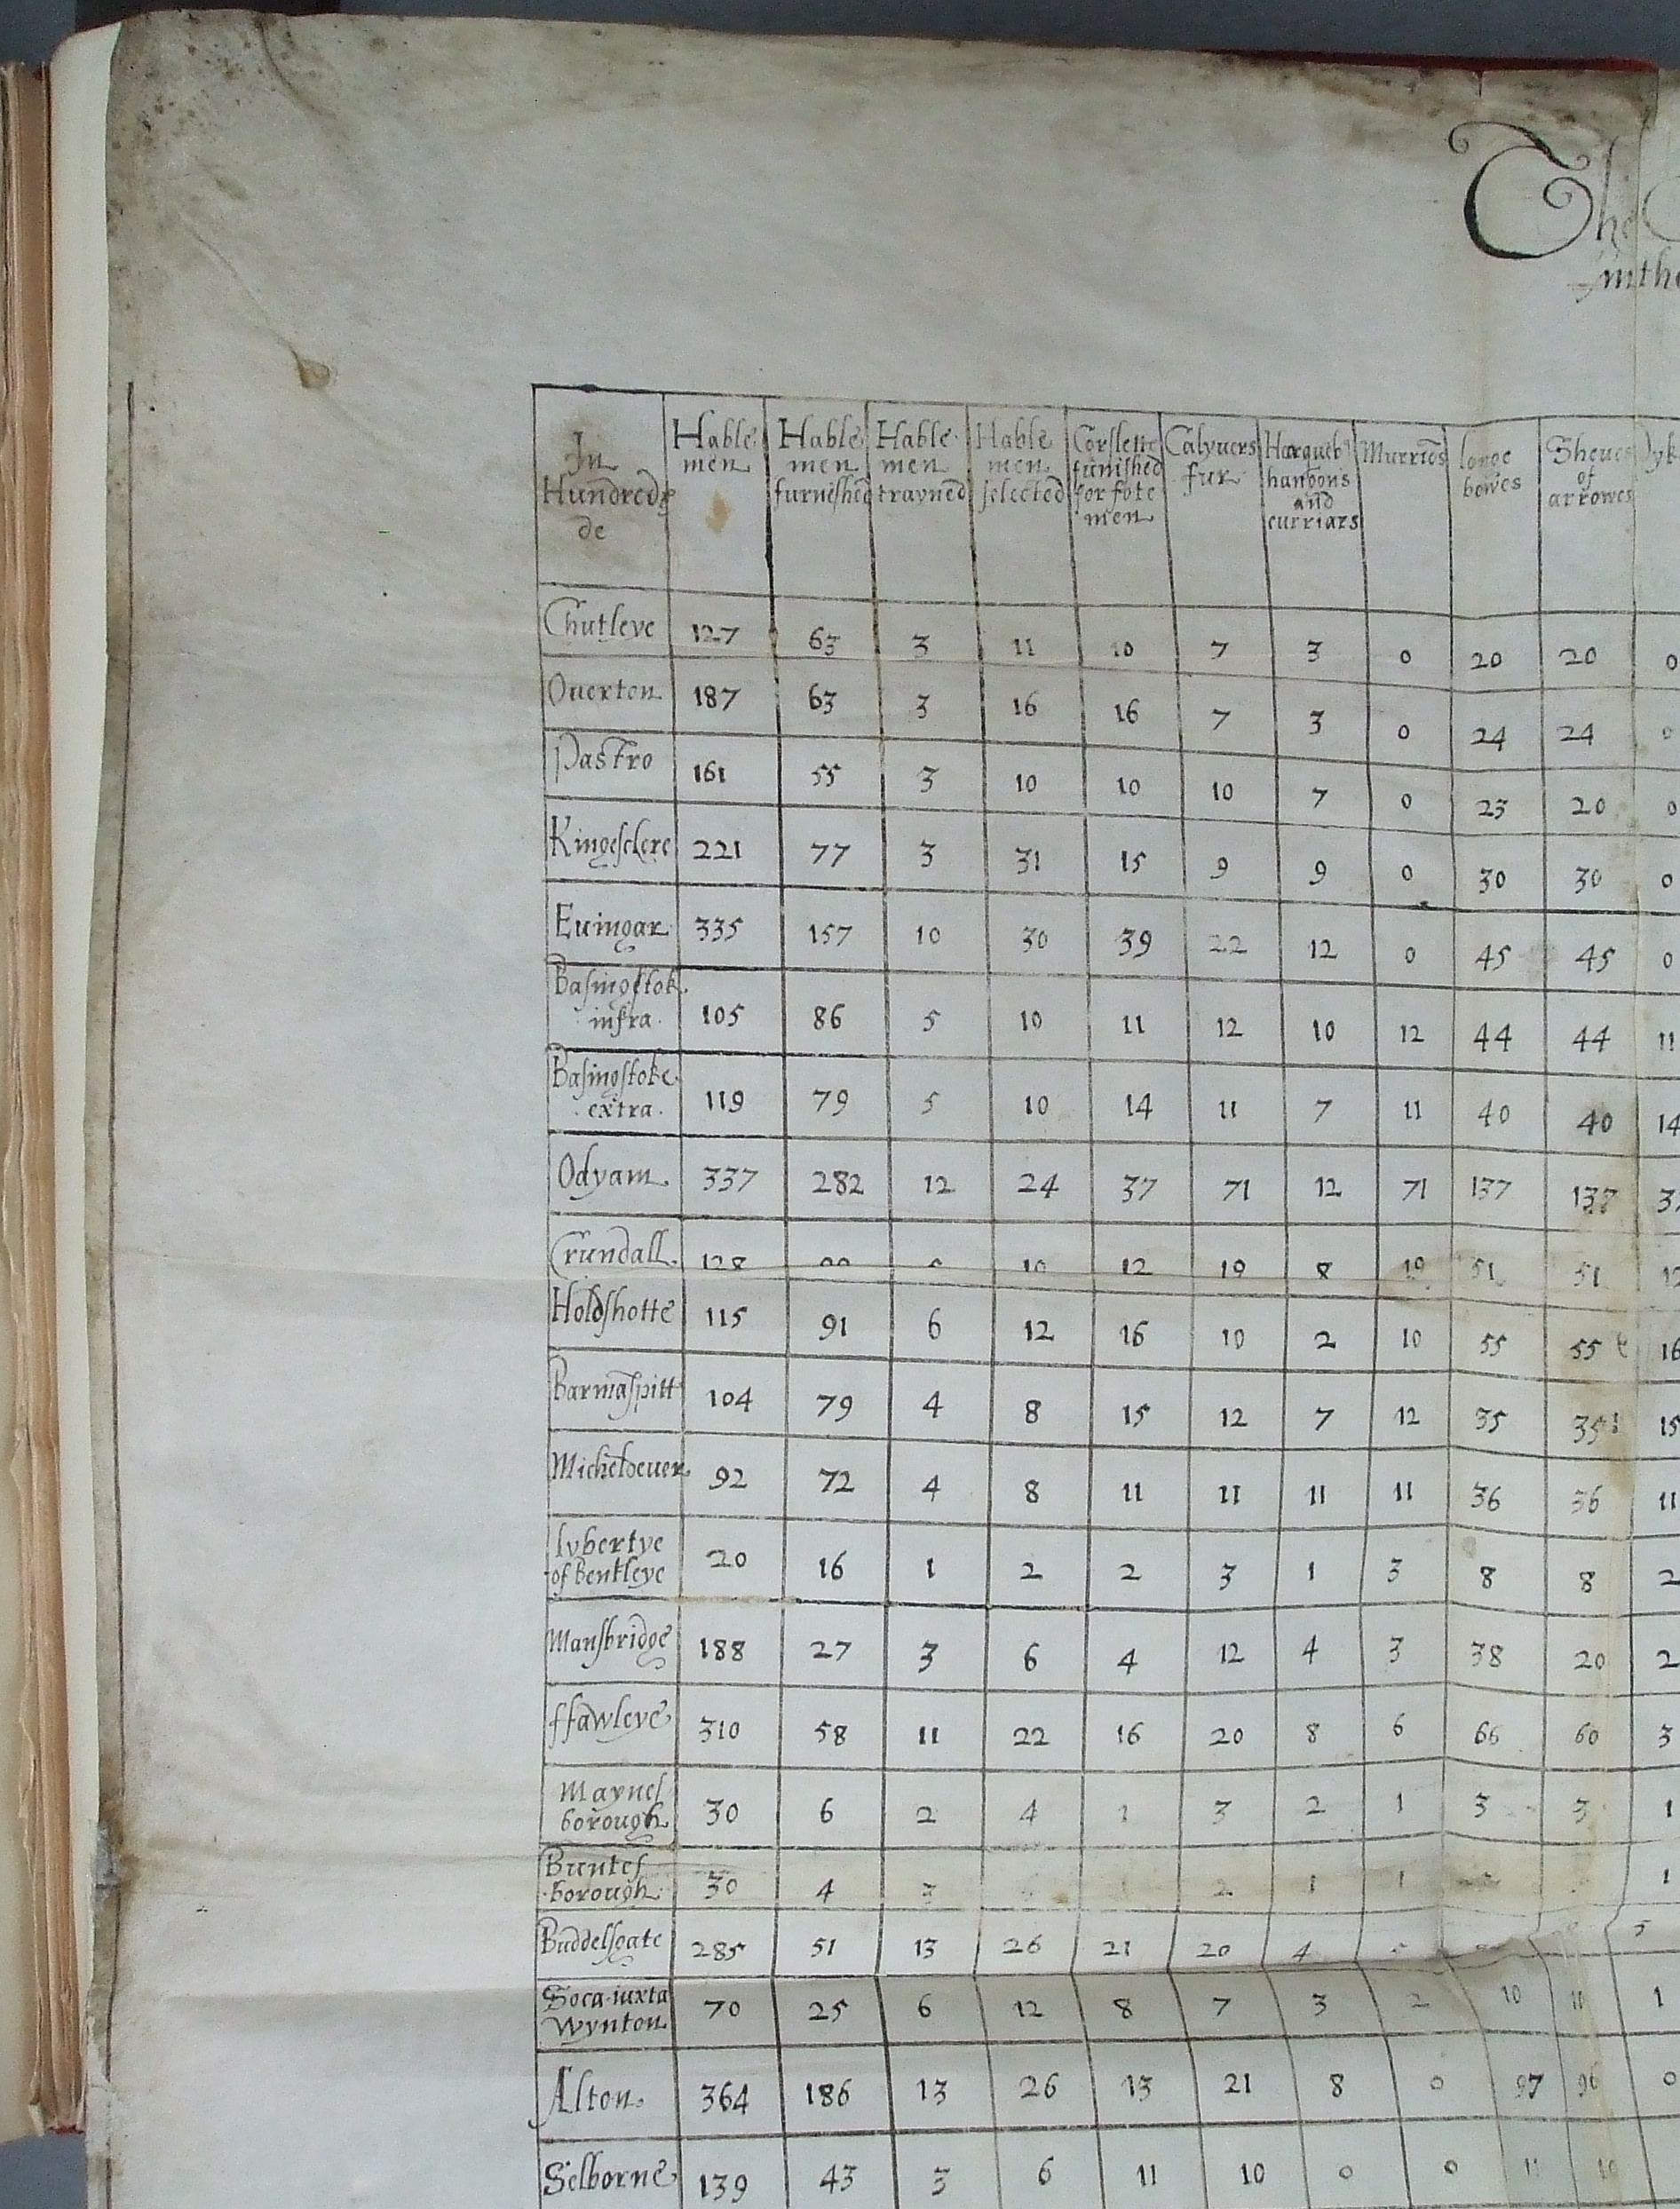 The
in the
In Hundreds de | Hable men | Hable men furnished | Hable men trayned | Hable men selected | Corslette furnished for fote men | Calyvers fur | Harqueb hanbons and curriars | Murrions | longe bowes | Sheues of arrowes
Chutleye 127 63 3 11 10 7 3 0 20 20 0
Ouerton 187 63 3 16 16 7 3 0 24 24 0
Pastro 161 55 3 10 10 10 7 0 23 20 0
Kingesclere 221 77 3 31 15 9 9 0 30 30 0
Euingar 335 157 10 30 39 22 12 0 45 45 0
Basingstok infra 105 86 5 10 11 12 10 12 44 44 11
Basingstoke extra 119 79 5 10 14 11 7 11 40 40 14
Odyam 337 282 12 24 37 71 12 71 137 137
Crundall 128 10 12 19 8 19 51 51 12
Holdshotte 115 91 6 12 16 10 2 10 55 55 16
Barmaspitt 104 79 4 8 15 12 7 12 35 35 15
Micheldeuer 92 72 4 8 11 11 11 11 36 36 11
lybertye of Bentleye 20 16 1 2 2 3 1 3 8 8 2
Mansbridge 188 27 3 6 4 12 4 3 38 20 2
ffawleye 310 58 11 22 16 20 8 6 66 60 3
Maynes borough 30 6 2 4 1 3 2 1 3 3 1
Buntes borough 30 4 3 2 1 1 1
Buddelsgate 285 51 13 26 21 20 4 5
Soca iuxta Wynton 70 25 6 12 8 7 3 2 10 10 1
Alton 364 186 13 26 13 21 8 0 97 96 0
Selborne 139 43 3 6 11 10 0 0 11 10